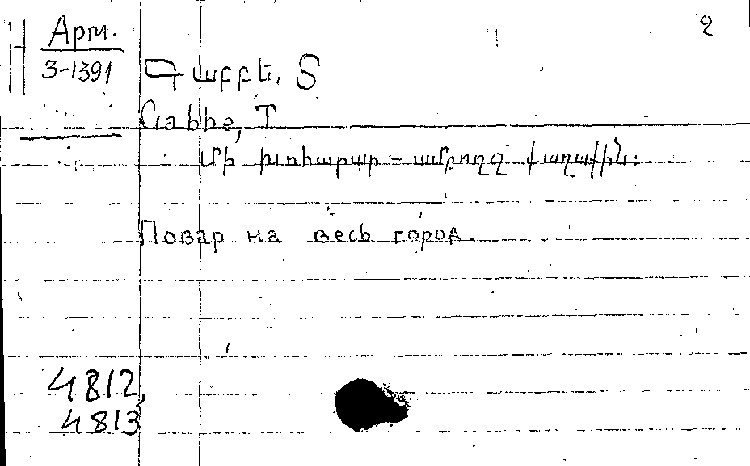 Арм.
3-1391
2
Գաբբե, Տ
Габбе, Т
Մի խոհարար - ամբողջ քաղաքին:
Повар на весь город.
4812,
4813